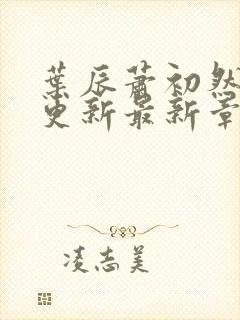 葉辰蕭初然
更新最新章
凌志美